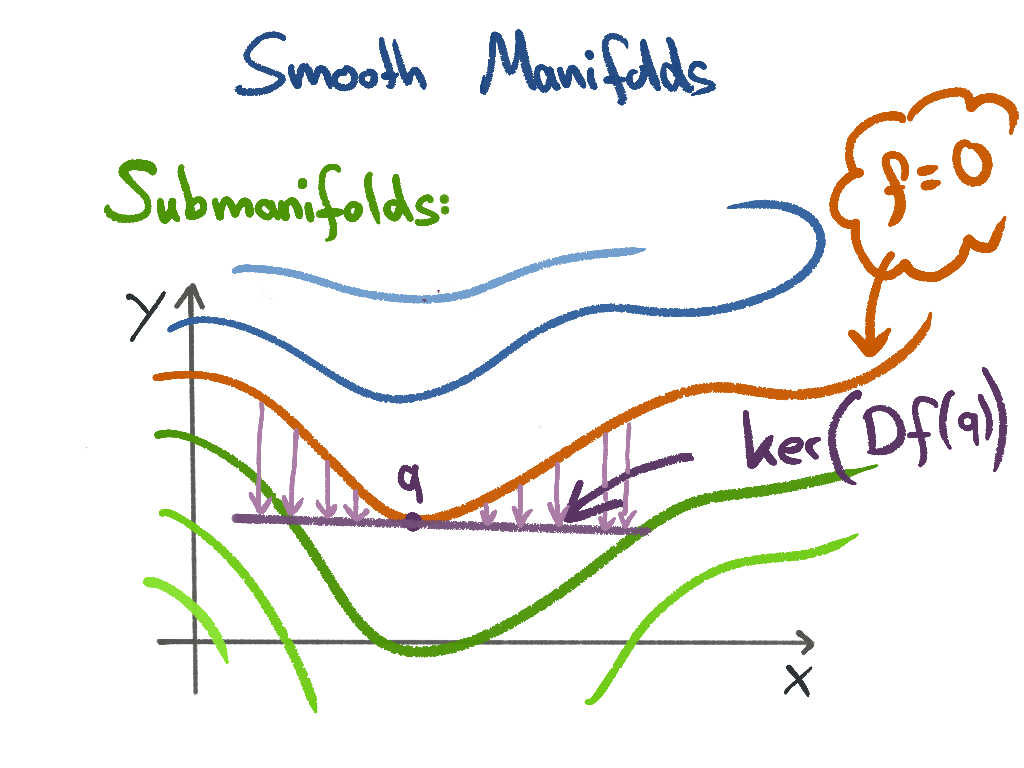 Smooth Manifolds
Submanifolds:
f = 0
y
q
ker(Df(q))
x